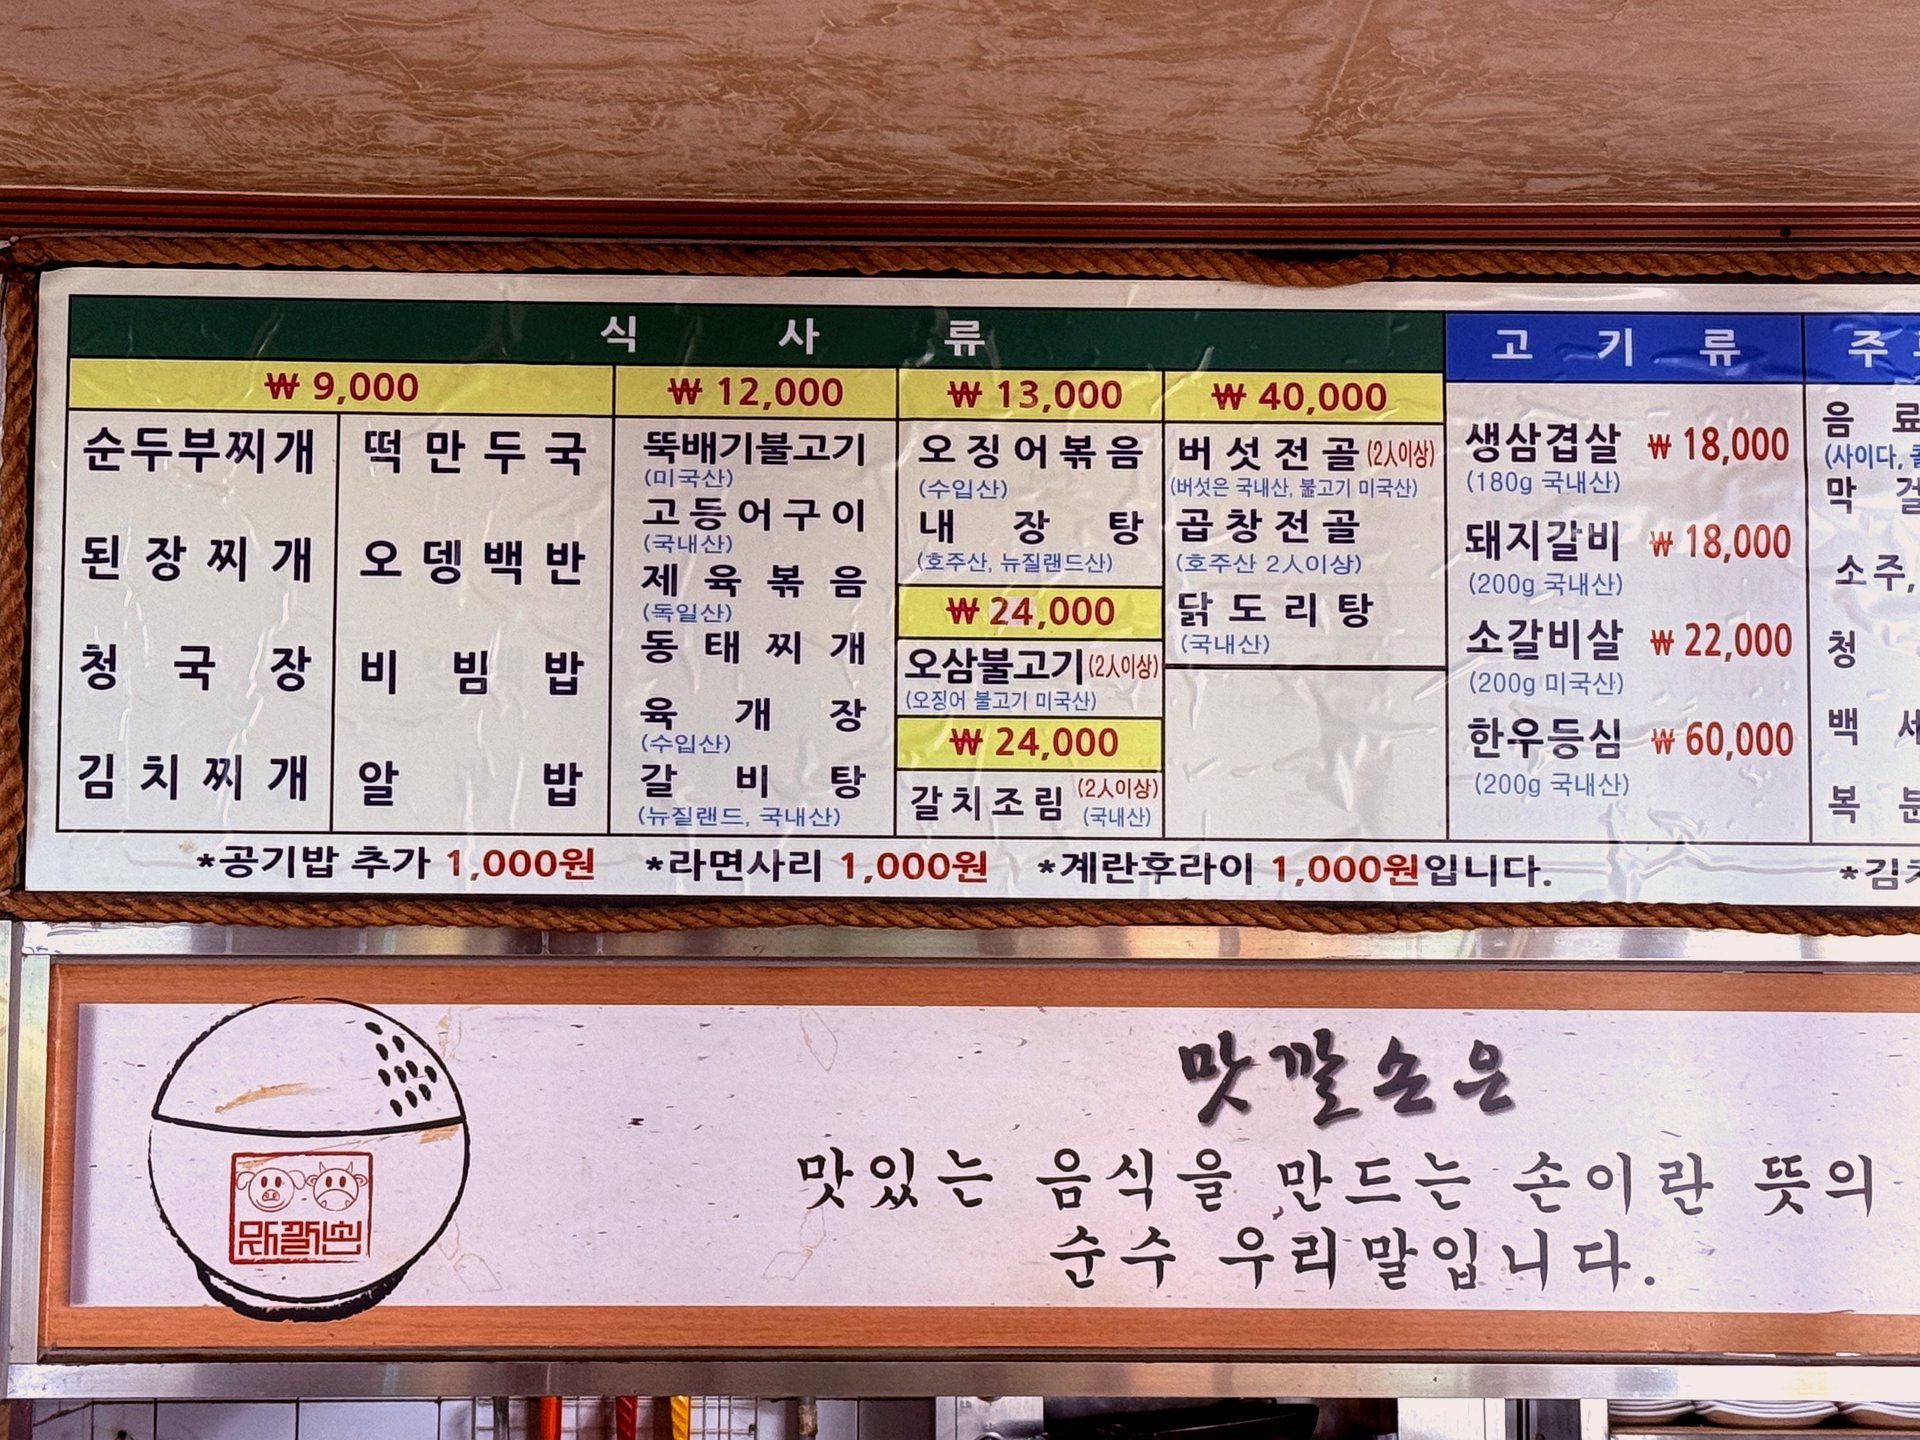 식 사 류
₩ 9,000
순두부찌개
된장찌개
청국장
김치찌개
떡만두국
오뎅백반
비빔밥
알밥
₩ 12,000
뚝배기불고기
(미국산)
고등어구이
(국내산)
제육볶음
(독일산)
동태찌개
육개장
(수입산)
갈비탕
(뉴질랜드, 국내산)
₩ 13,000
오징어볶음
(수입산)
내장탕
(호주산, 뉴질랜드산)
₩ 24,000
오삼불고기 (2人이상)
(오징어 불고기 미국산)
₩ 24,000
갈치조림 (2人이상)
(국내산)
₩ 40,000
버섯전골 (2人이상)
(버섯은 국내산, 불고기 미국산)
곱창전골
(호주산 2人이상)
닭도리탕
(국내산)
고 기 류
생삼겹살 ₩ 18,000
(180g 국내산)
돼지갈비 ₩ 18,000
(200g 국내산)
소갈비살 ₩ 22,000
(200g 미국산)
한우등심 ₩ 60,000
(200g 국내산)
주
음 료
(사이다,
막 걸
소주,
청
백 세
복 분
*공기밥 추가 1,000원 *라면사리 1,000원 *계란후라이 1,000원입니다. *김치
맛깔손은
맛있는 음식을 만드는 손이란 뜻의
순수 우리말입니다.
맛깔손